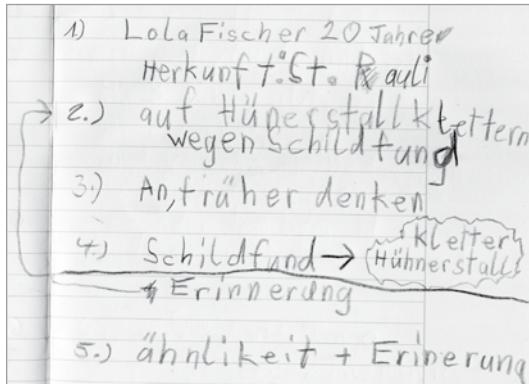 1) Lola Fischer 20 Jahre
Herkunft: St. Pauli
2.) auf Hünerstall klettern
wegen Schildfund
3.) An, früher denken
4.) Schildfund → Kletter
Hühnerstall
Erinnerung
5.) ähnlikeit + Erinerung